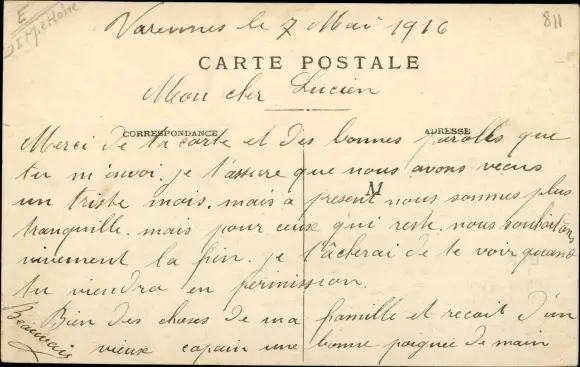 E
I M et Loire
811
Varennes le 7 Mai 1916
CARTE POSTALE
Mon cher Lucien
CORRESPONDANCE
ADRESSE
M
Merci de ta carte et des bonnes parolles que
tu m'envoi. je t'assure que nous avons vecus
un triste mois. mais a present nous sommes plus
tranquille. mais pour ceux qui reste. nous souhaitons
vivement la fin. je tâcherai de te voir quand
tu viendra en permission.
Bien des choses de ma famille et recoit d'un
vieux copain une bonne poignée de main
Beauvais